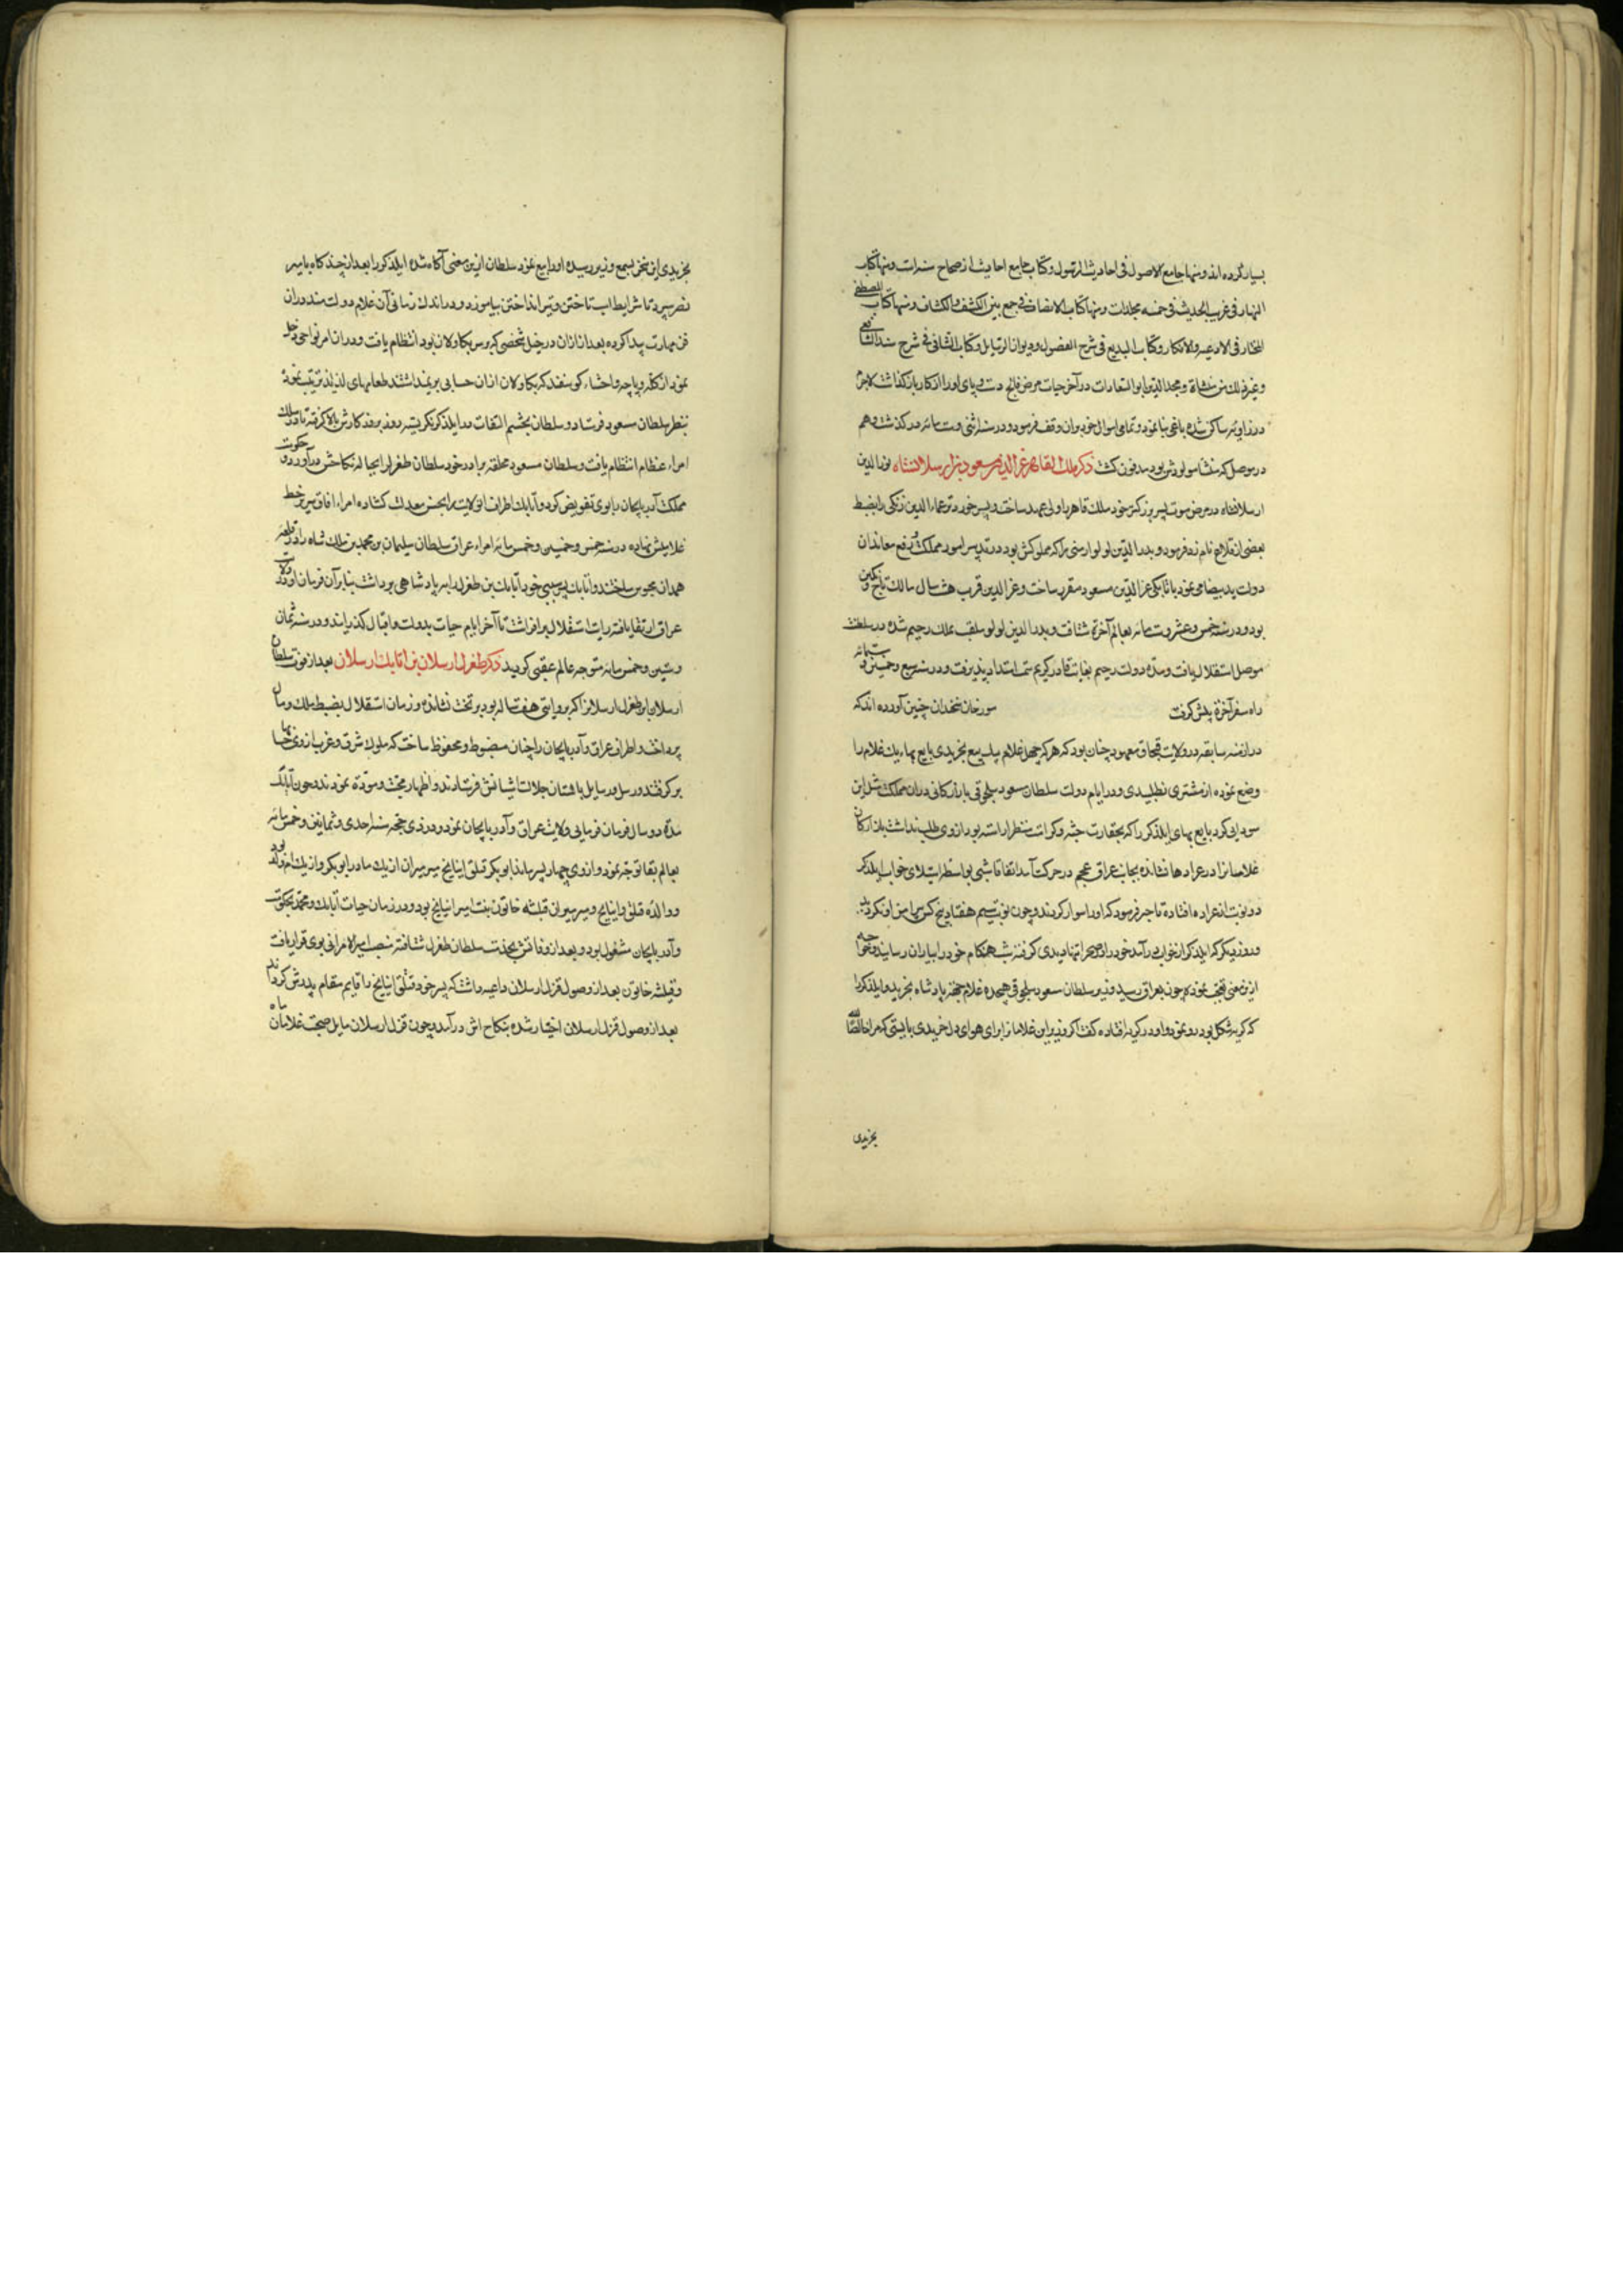 بسیار کرده اند و منها جامع الاصول فی احادیث الرسول و کتاب جامع احادیث از صحاح ست است و منها کتاب
النهایه فی غریب الحدیث فی خمسه مجلدات و منها کتاب الانصاف فی جمع بین الکشف و الکشاف و منها کتاب المصطفی
المختار فی الادعیه و الاذکار و کتاب البدیع فی شرح الفصول و دیوان الرسایل و کتاب الشافی فی شرح مسند الشافعی
و غیر ذلک من و مجد الدین ابو السعادات در آخر حیات مرض فالج دست و پای او را از کار باز کذاشت لاجرم
در زاویه ساکن شده باغی بنا نمود و تمامی اموال خود بران وقف فرمود و در سنه اثنی و ستمایه در کذشت و هم
در موصل که منشا و مولودش بود مدفون کشت ذکر ملک القاهر عز الدین مسعود بن ارسلانشاه نور الدین
ارسلانشاه در مرض موت پسر بزرکتر خود ملک قاهر را ولی عهد ساخت و پسر خوردتر عماد الدین زنکی را بضبط
بعضی از قلاع نام زد فرمود و بدر الدین لولو ارمنی را که مملوکش بود و در تدبیر امور مملکت و رفع معاندان
دولت ید بیضا می نمود باتابکی عز الدین مسعود مقرر ساخت و عز الدین قرب هشت سال مالک تاج و نکین
بود و در سنه خمس و عشر و ستمایه بعالم آخرة شتافت و بدر الدین لولو ملقب بملک رحیم شده در سلطنت
موصل استقلال یافت و مدة دولت رحیم بعنایت قادر کریم سمت امتداد پذیرفت و در سنه سبع و خمسین و ستمایه
راه سفر آخرة پیش کرفت مورخان سخندان چنین آورده اند که
در ازمنه سابقه در ولایت قبچاق معهود چنان بود که هر که چهل غلام بیک بیع بخریدی بایع بهاء یک غلام را
وضع نموده از مشتری نطلبیدی و در ایام دولت سلطان مسعود سلجوقی بازارکانی دران مملکت مثل این
سودایی کرد بایع بهای ایلدکز را که بحقارت جثه و کراهت منظر اراسته بود از وی طلب نداشت بازارکان
غلامانرا در عرادها نشانده بجانب عراق عجم در حرکت آمد اتفاقا شبی بواسطه استیلای خواب ایلدکز
دو نوبت از عراده افتاده تاجر فرمود که او را سوار کردند و چون نوبت سیم هفتاد هیچ کس پیرامن او نکردید
و روز دیکر که ایلدکز از خواب در آمد خود را در صحرا تنها دیدی کرفته شب هنکام خود را بیاران رسانید و خواجه
ازین معنی تعجب نموده چون بعراق رسید وزیر سلطان مسعود سلجوقی هیجده غلام جهة پادشاه بخرید و ایلدکز را
که کریه شکل بود رد نمود و او در کریه افتاده کفت اکر وزیر این غلامانرا برای هوای دل خریدی بایستی که مرا خالصا لله
بخریدی
بخریدی این سخن بسمع وزیر رسیده او را بیع نمود سلطان ازین معنی آکاه شده ایلدکز را بعد از چند کاه بامیر
نصر سپرد تا شرایط اسب تاختن و تیر انداختن بیاموزد و در اندک زمانی آن غلام دولتمند دران
فن مهارت پیدا کرده بعد ازان در خیل شخصی که رس بکاولان بود انتظام یافت و دران امر نواحی دخل
نمود از کله و پاچه و احشاء کوسفند که بکاولان ازان حسابی بر نمیداشتند طعامهای لذیذ ترتیب نموده
بنظر سلطان مسعود فرستاد و سلطان بچشم التفات در ایلدکز نکریسته روز بروز کارش بالا کرفته تا در سلک
امراء عظام انتظام یافت و سلطان مسعود مخلفه برادر خود سلطان طغرل را بحباله نکاحش در آورد و حکومت
مملکت آدربایجان را بوی تفویض کرد و اتابک اطراف ان ولایت را بحسن معدلت کشاده امراء افاق سر بر خط
غلامیش نهاده در سنه خمس و خمسین و خمسمایه امراء عراق سلطان سلیمان بن محمد بن ملک شاه را در قلعه
همدان محبوس ساختند و اتابک پسر سببی خود اتابک بن طغرل را بپادشاهی برداشت بنابرآن فرمان او در ولایت
عراق ارتفاع یافته رایت استقلال برافراشت تا آخر ایام حیات بدولت و اقبال کذرانید و در سنه ثمان
و ستین و خمسمایه متوجه عالم عقبی کردید ذکر طغرل ارسلان بن اتابک ارسلان بعد از فوت سلطان
ارسلان بن طغرل ارسلانرا که بروایتی هفت ساله بود بر تخت نشانده و زمان استقلال بضبط ملک و مال
پرداخت و اطراف عراق و آدربایجان را چنان مضبوط و محفوظ ساخت که ملوک شرق و غرب از وی حسابها
بر کرفتند و رسل و رسایل باستان جلالت اشیانش فرستادند و اظهار محبت و مودة نمودند و چون اتابک
مدة دو سال فرمان فرمایی ولایت عراق و آدربایجان نمود و در ذی حجه سنه احدی و ثمانین و خمسمایه
بعالم بقا توجه نمود و از وی چهار پسر ماند ابو بکر قتلق اینانج میر میران ازبک مادر ابو بکر و ازبک ام ولد بود
و والدة قتلق و اینانج و میر میران قبلشه خاتون بنت امیر اینانج بود و در زمان حیات اتابک محمد بحکومت
و آدربایجان مشغول بود و بعد از وفاتش بخدمت سلطان طغرل شتافته منصب امیر الامرائی بوی قرار یافت
و قبلشه خاتون بعد از وصول قزل ارسلان داعیه داشت که پسر خود قتلق اینانج را قایم مقام پدرش کرداند
بعد از وصول قزل ارسلان اختیار شده بنکاح اش در آمد و چون قزل ارسلان مایل صحبت غلامان ماه